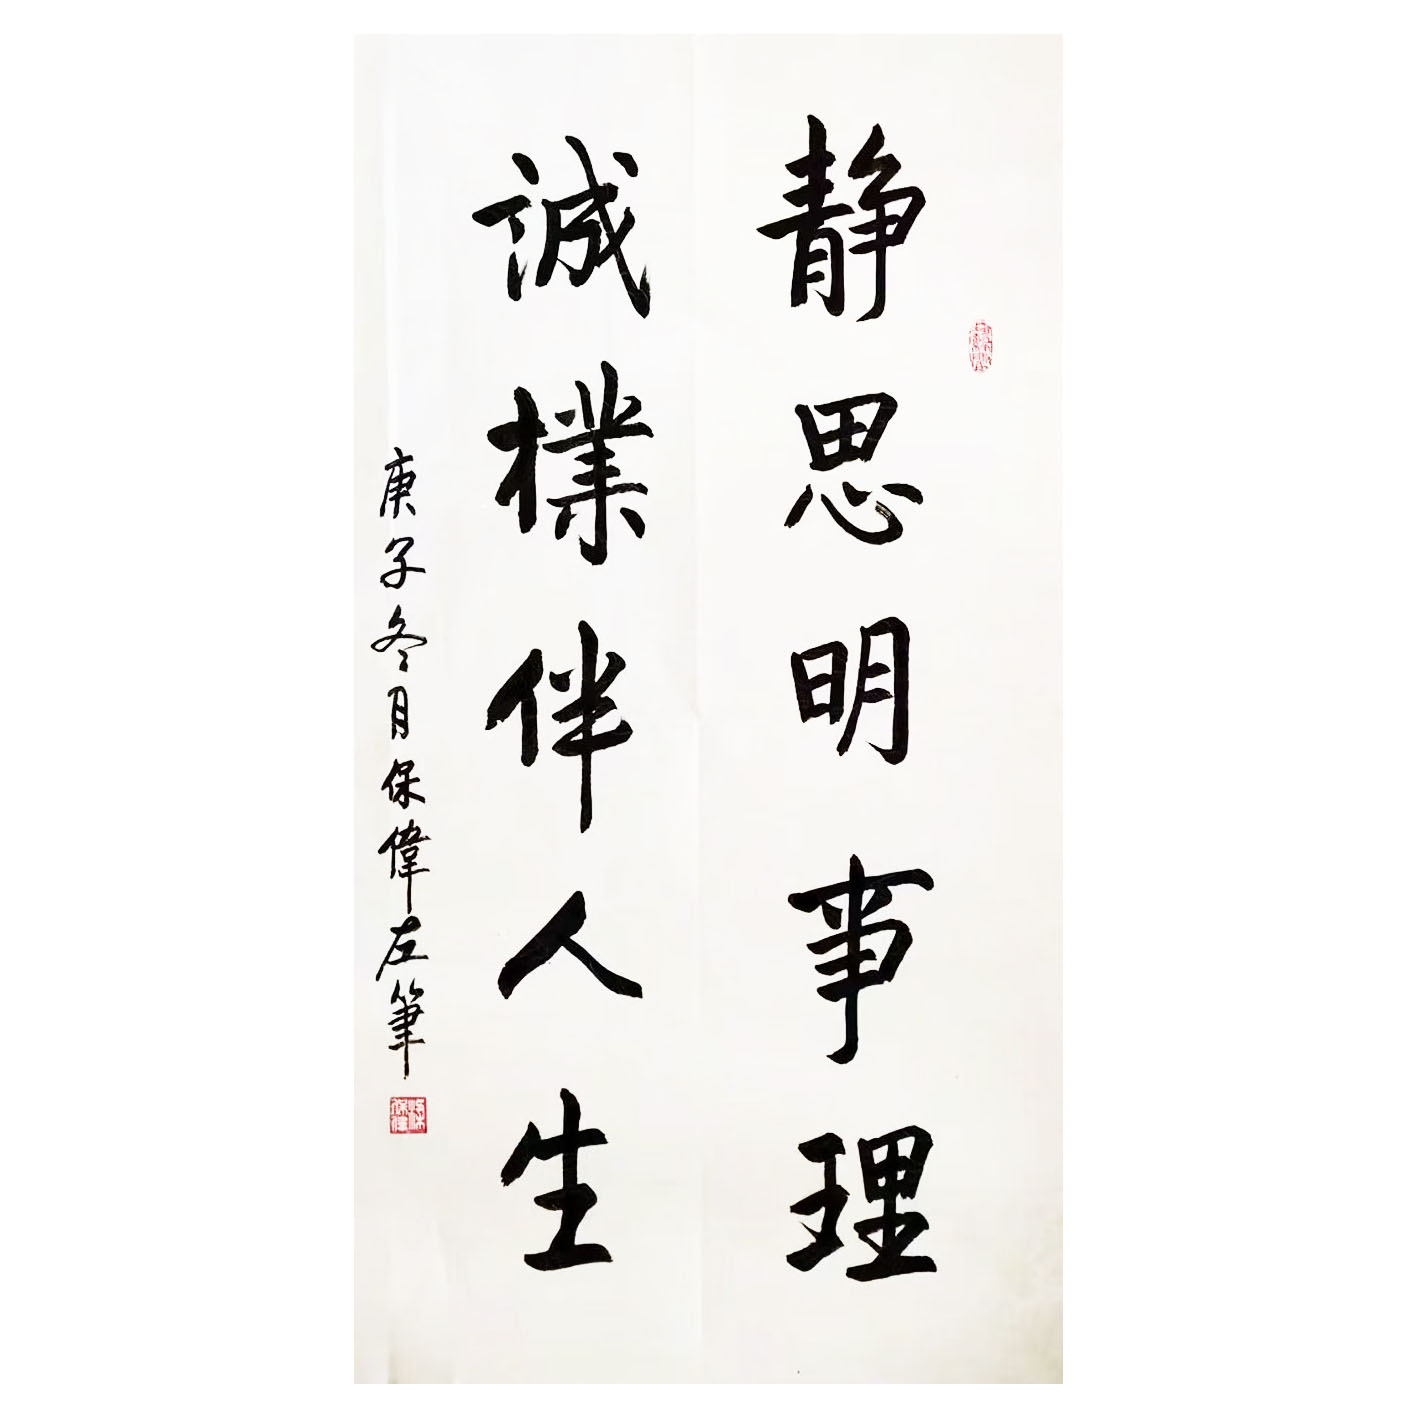 静思明事理
誠樸伴人生
庚子冬月保偉左筆